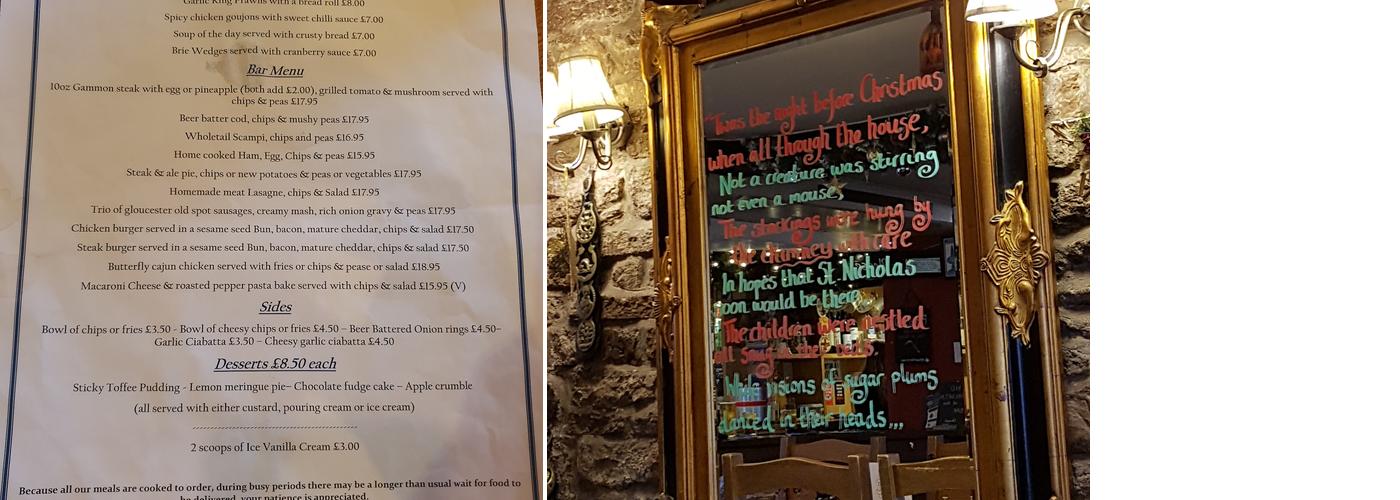 Garlic King Prawns with a bread roll £8.00
Spicy chicken goujons with sweet chilli sauce £7.00
Soup of the day served with crusty bread £7.00
Brie Wedges served with cranberry sauce £7.00
Bar Menu
10oz Gammon steak with egg or pineapple (both add £2.00), grilled tomato & mushroom served with
chips & peas £17.95
Beer batter cod, chips & mushy peas £17.95
Wholetail Scampi, chips and peas £16.95
Home cooked Ham, Egg, Chips & peas £15.95
Steak & ale pie, chips or new potatoes & peas or vegetables £17.95
Homemade meat Lasagne, chips & Salad £17.95
Trio of gloucester old spot sausages, creamy mash, rich onion gravy & peas £17.95
Chicken burger served in a sesame seed Bun, bacon, mature cheddar, chips & salad £17.50
Steak burger served in a sesame seed Bun, bacon, mature cheddar, chips & salad £17.50
Butterfly cajun chicken served with fries or chips & pease or salad £18.95
Macaroni Cheese & roasted pepper pasta bake served with chips & salad £15.95 (V)
Sides
Bowl of chips or fries £3.50 - Bowl of cheesy chips or fries £4.50 – Beer Battered Onion rings £4.50–
Garlic Ciabatta £3.50 – Cheesy garlic ciabatta £4.50
Desserts £8.50 each
Sticky Toffee Pudding - Lemon meringue pie– Chocolate fudge cake – Apple crumble
(all served with either custard, pouring cream or ice cream)
2 scoops of Ice Vanilla Cream £3.00
Because all our meals are cooked to order, during busy periods there may be a longer than usual wait for food to
be delivered, your patience is appreciated.
"Twas the night before Christmas
when all through the house,
Not a creature was stirring
not even a mouse,
The stockings were hung by
the chimney with care
In hopes that St Nicholas
soon would be there
The children were nestled
all snug in their beds.
While visions of sugar plums
danced in their heads,,,